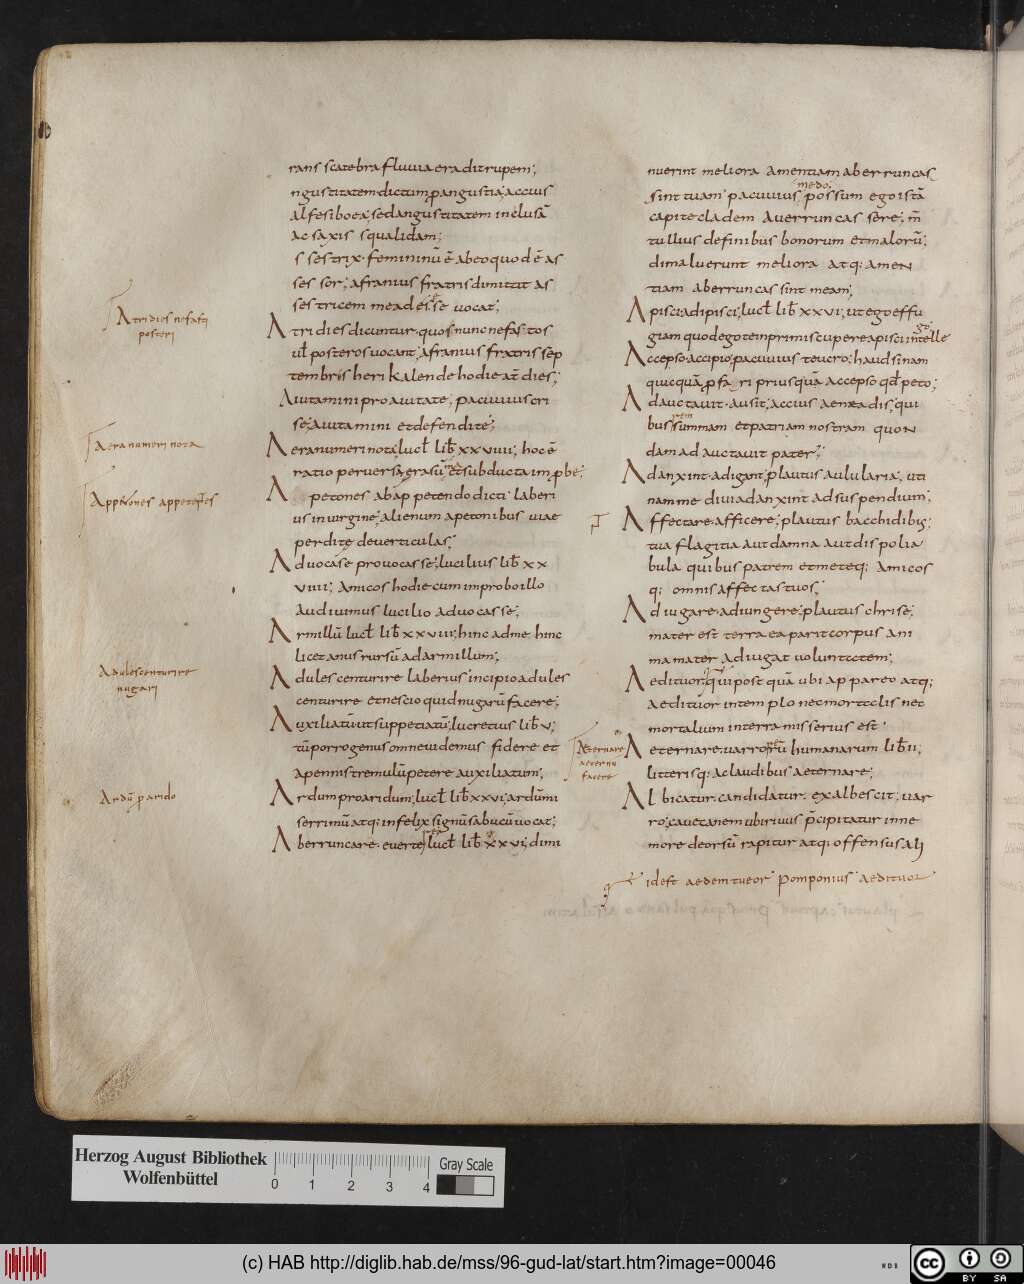 rans scatebra fluuia era dit rupem;
ngustitatem dictum, p angustia; accius
alfesiboea; sed angustitatem inclusā
ac saxis squalidam;
s sestrix femininū ē ab eo quod ē as
ses sor; afranius fratris dimittit as
sestricem mea desse uocat;
Atri dies dicuntur, quos nunc nefas tos
ul posteros uocant; afranius fratris sep
tembris heri kalende hodie at dies;
Auitamini pro auitate, pacuuius cri
se; auitamini et defendite;
Aera numeri nota; lucl lib xxviiii; hoc ē
ratio peruersa, erasū et subducta improbe;
A petones ab app petendo dicti laberi
us in uirgine; alienum apetonibus uiae
perdite deuerticulas;
Aduocasse prouocasse; lucilius lib xx
viiii; amicos hodie cum improbo illo
audiuimus lucilio aduocasse;
Armillū lucl lib xxviiii; hinc ad me hinc
licet anus rursū ad armillum;
Adulescenturire laberius incipio adules
centurire et nescio quid nugarū facere;
Auxiliatū ut suppetiatū; lucretius lib v;
tū porro genus omne uidemus fidere et
a pennis tremulū petere auxiliatum;
Ardum pro aridum; lucl lib xxvi; ardūmi
serrimū atq; infelix signū sabucū uocat;
Aberruncare euerte; lucl lib xxvi; dimi
Atri dies nefasti
posteri
Aera numeri nota
Appetones appetentes
Adulescenturire
nugari
Ardū p arido
uerint meliora amentiam aberruncas
sint tuam pacuuius possum ego istā
medo;
capite cladem auerruncas sere; m
tullius de finibus bonorum et malorū;
di maluerunt meliora atq; amen
tiam aberruncas sint meam;
Apisci adipisci; lucl lib xxvi; ut ego effu
giam quod ego te inprimis cupere apisci intelle
go;
Accepso accipio; pacuuius teucro; haud sinam
quicquā pfa ri priusquā accepso qd peto;
Adauctauit ausit; accius aeneadis; qui
bus summam et patriam nostram quon
rem
dam adauctauit pater;
Adanxint adigant; plautus aulularia; uti
nam me diui adanxint ad suspendium;
Affectare afficere; plautus bacchidibus;
tua flagitia aut damna aut dispolia
bula quibus patrem et me teq; amicos
q; omnis affectas tuos;
Adiugare adiungere; plautus chrise;
mater est terra ea parit corpus ani
ma mater adiugat uoluntetem;
Aedituor; qui postquā ubi appareo atq;
aedituor in templo nec mortelis nec
mortalium in terra misserius est
Aeternare; uarro rerū humanarum lib ii;
litteris q; ac laudibus aeternare;
Albicatur candidatur exalbescit; uar
ro; cauet anem ubi riuus pcipitatur in ne
more deorsū rapitur atq; offensus alj
id est aedem tueor Pomponius aedituor
Aeternare
aeternū
facere
Herzog August Bibliothek
Wolfenbüttel
0 1 2 3 4
Gray Scale
(c) HAB http://diglib.hab.de/mss/96-gud-lat/start.htm?image=00046
WDB
cc BY SA